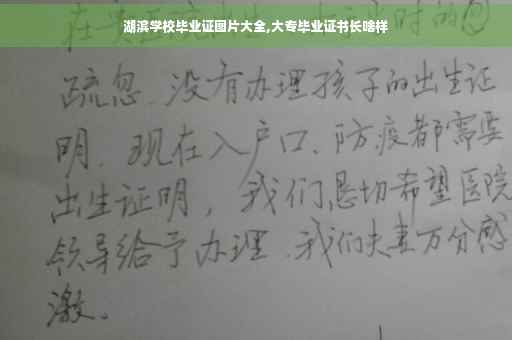 湖滨学校毕业证图片大全,大专毕业证书长啥样
疏忽、没有办理孩子的出生证
明、现在入户口、防疫都需要
出生证明，我们恳切希望医院
领导给予办理、我们夫妻万分感
激。